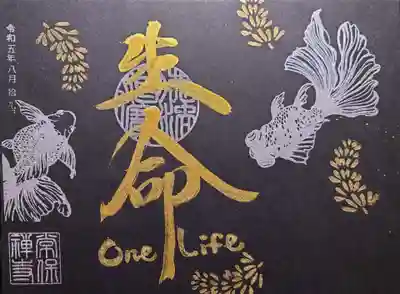 令和五年八月拾
生命
One Life
常保
禪寺